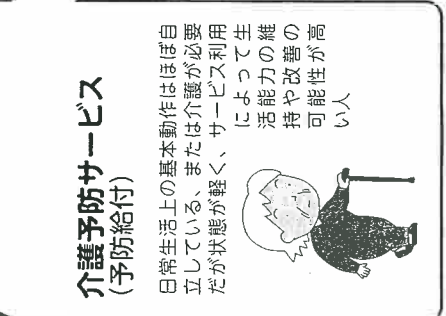 介護予防サービス
(予防給付)
日常生活上の基本動作はほぼ自
立している、または介護が必要
だが状態が軽く、サービス利用
によって生
活能力の維
持や改善の
可能性が高
い人